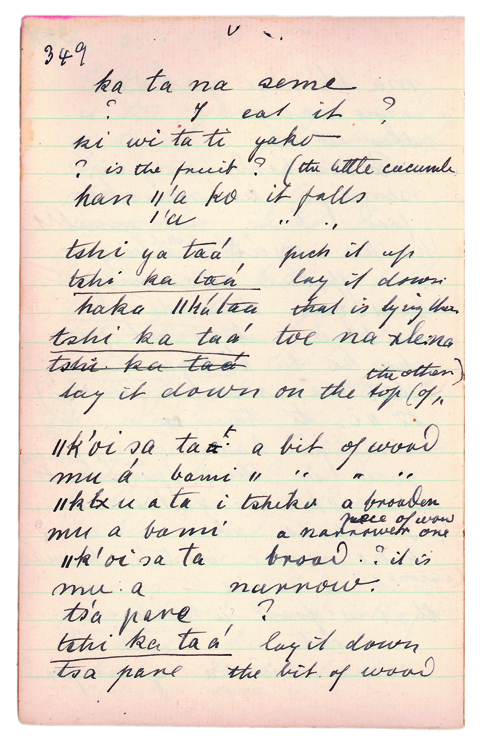 349
ka ta na seme
? I eat it ?
ki wi ta ti yako
? is the fruit ? (the little cucumbe
han ǁ'a ko it falls
ǀ'a " "
tshi ya taá pick it up
tshi ka taá lay it down
haka ǁká taa that is lying then
tshi ka taá toe na
tshi ka taá
the other)
lay it down on the top (of "
ǁk'oi sa ta a bit of wood
mu á bami " " " "
u a ta i tsheko a broaden
piece of wood
mu a bami a narrower one
ǁk'oi sa ta broad . ? it is
mu . a narrow .
tsa pare ?
tshi ka taá lay it down
tsa pare the bit of wood